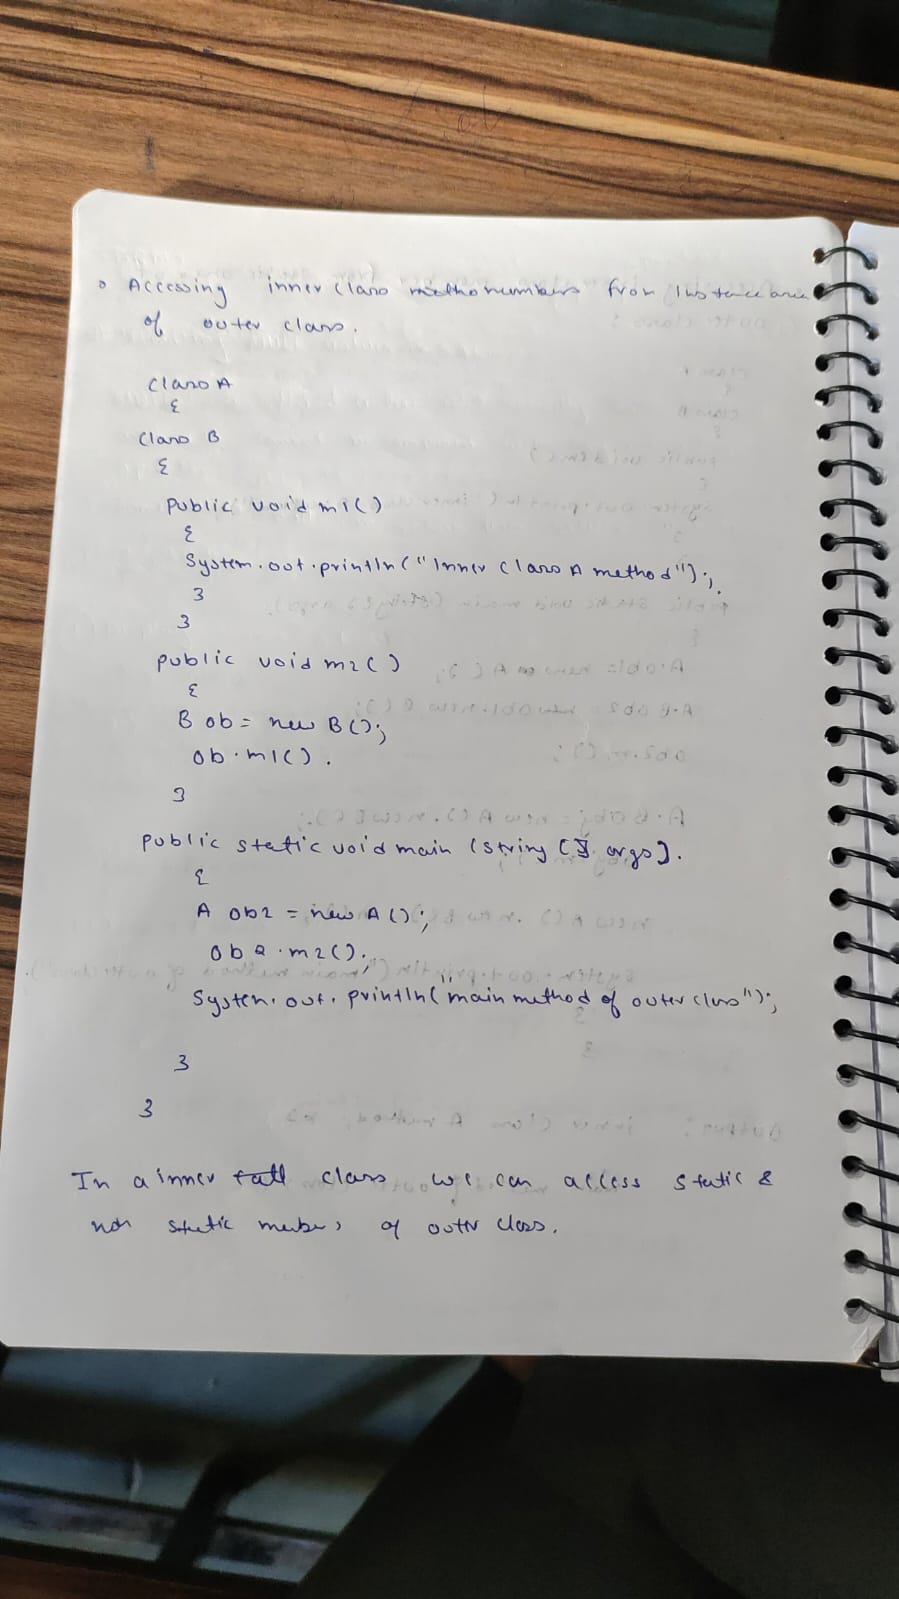 Accessing inner class members from Instance area
of outer class.
class A
{
class B
{
public void m1()
{
System.out.println("Inner class A method");
}
}
public void m2()
{
B ob = new B();
ob.m1().
}
public static void main (string [] args).
{
A ob2 = new A();
ob2.m2();
System.out.println("main method of outer class");
}
}
In a inner class we can access static &
non static members of outer class.